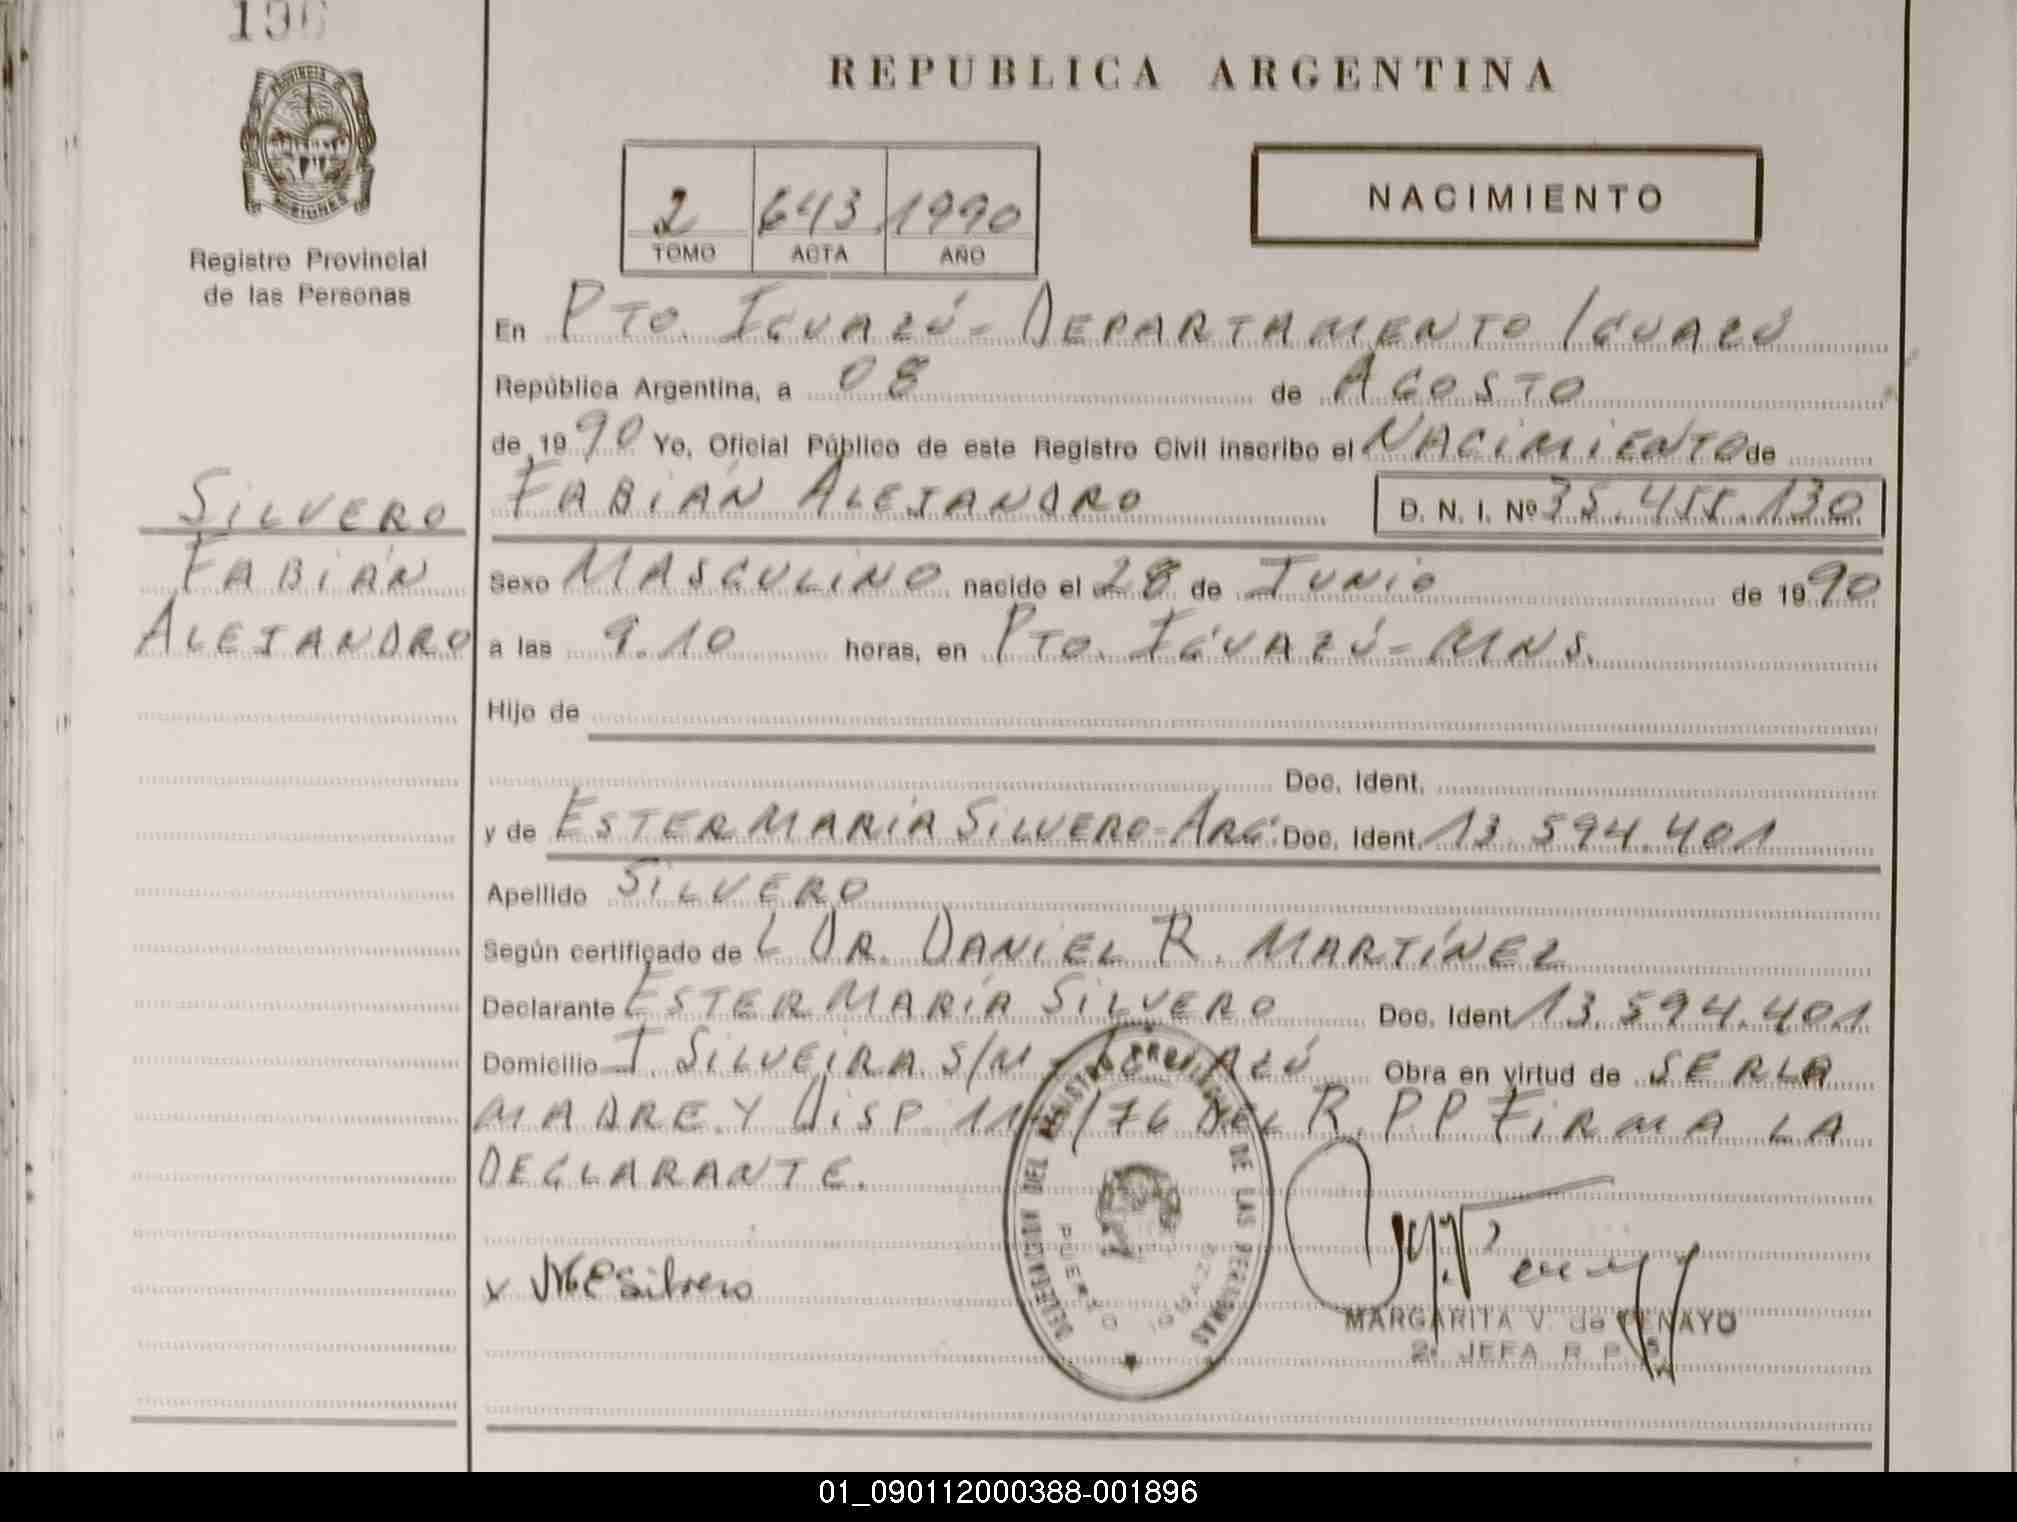 196
PROVINCIA
MISIONES
Registro Provincial
de las Personas
REPUBLICA ARGENTINA
2 643 1990
TOMO ACTA AÑO
NACIMIENTO
En PTO. IGUAZÚ - DEPARTAMENTO IGUAZÚ
República Argentina, a 08 de AGOSTO
de 1990 Yo, Oficial Público de este Registro Civil inscribo el NACIMIENTO de
FABIÁN ALEJANDRO D. N. I. Nº 35.455.130
SILVERO
FABIÁN
ALEJANDRO
Sexo MASCULINO nacido el 28 de JUNIO de 1990
a las 9.10 horas, en PTO. IGUAZÚ - MNS.
Hijo de
Doc. Ident.
y de ESTER MARÍA SILVERO - ARG. Doc. Ident. 13.594.401
Apellido SILVERO
Según certificado de L DR. DANIEL R. MARTÍNEZ
Declarante ESTER MARÍA SILVERO Doc. Ident 13.594.401
Domicilio J. SILVEIRA S/N - IGUAZÚ Obra en virtud de SER LA
MADRE Y DISP. /76 DEL R.P.P. FIRMA LA
DECLARANTE.
DELEGACION DEL REGISTRO PROVINCIAL DE LAS PERSONAS
PUERTO IGUAZU
x MESilvero
MARGARITA V. de PENAYO
2ª JEFA R. P.
01_090112000388-001896